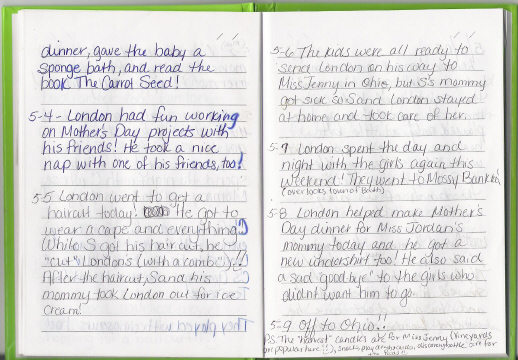 dinner, gave the baby a
sponge bath, and read the
book The Carrot Seed!
5-4- London had fun working
on Mother's Day projects with
his friends! He took a nice
nap with one of his friends, too!
5-5 London went to get a
haircut today! He got to
wear a cape and everything!
While S got his hair cut, he
"cut" London's (with a comb)!
After the haircut, S and his
mommy took London out for ice
cream!
5-6 The kids were all ready to
send London on his way to
Miss Jenny in Ohio, but S's mommy
got sick so S and London stayed
at home and took care of her.
5-7 London spent the day and
night with the girls again this
weekend! They went to Mossy Bank
(overlooks town of Bath)
5-8 London helped make Mother's
Day dinner for Miss Jordan's
mommy today and he got a
new undershirt too! He also said
a sad "good-bye" to the girls who
didn't want him to go.
5-9 Off to Ohio!!
P.S. The candies are for Miss Jenny (Vineyards
are popular here!!),